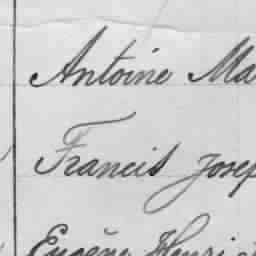 Antoine Ma
Francis Josep
Eugène Henri